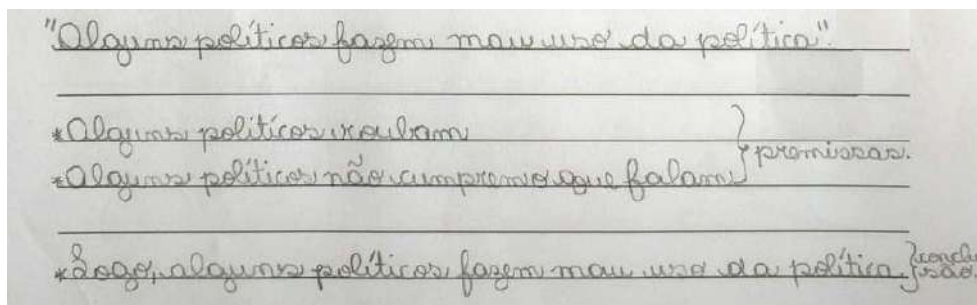 "Alguns políticos fazem mau uso da política".
*Alguns políticos roubam
*Alguns políticos não cumprem o que falam } premissas.
*Logo, alguns políticos fazem mau uso da política. } conclusão.